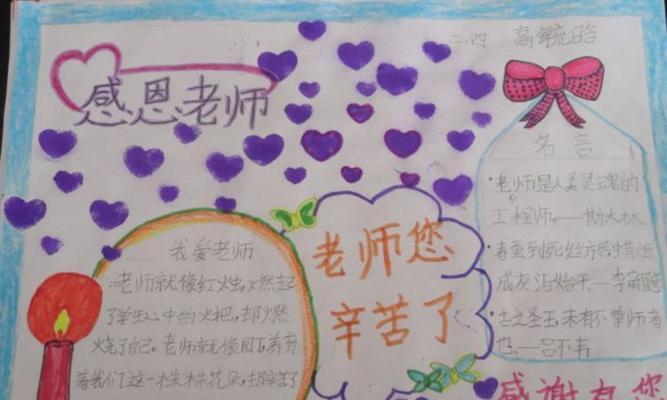 二四 高毓晗
感恩老师
名言
·老师是人类灵魂的
工程师。——斯大林
·春蚕到死丝方尽,蜡炬
成灰泪始干—李商隐
·古之圣王,未有不尊师者
也.—吕不韦
我爱老师
老师就像红烛,燃起
了学生心中的火把,却燃
烧了自己。老师就像园丁,养育
着我们这一株株花朵,却辛苦了
老师您
辛苦了
感谢有您